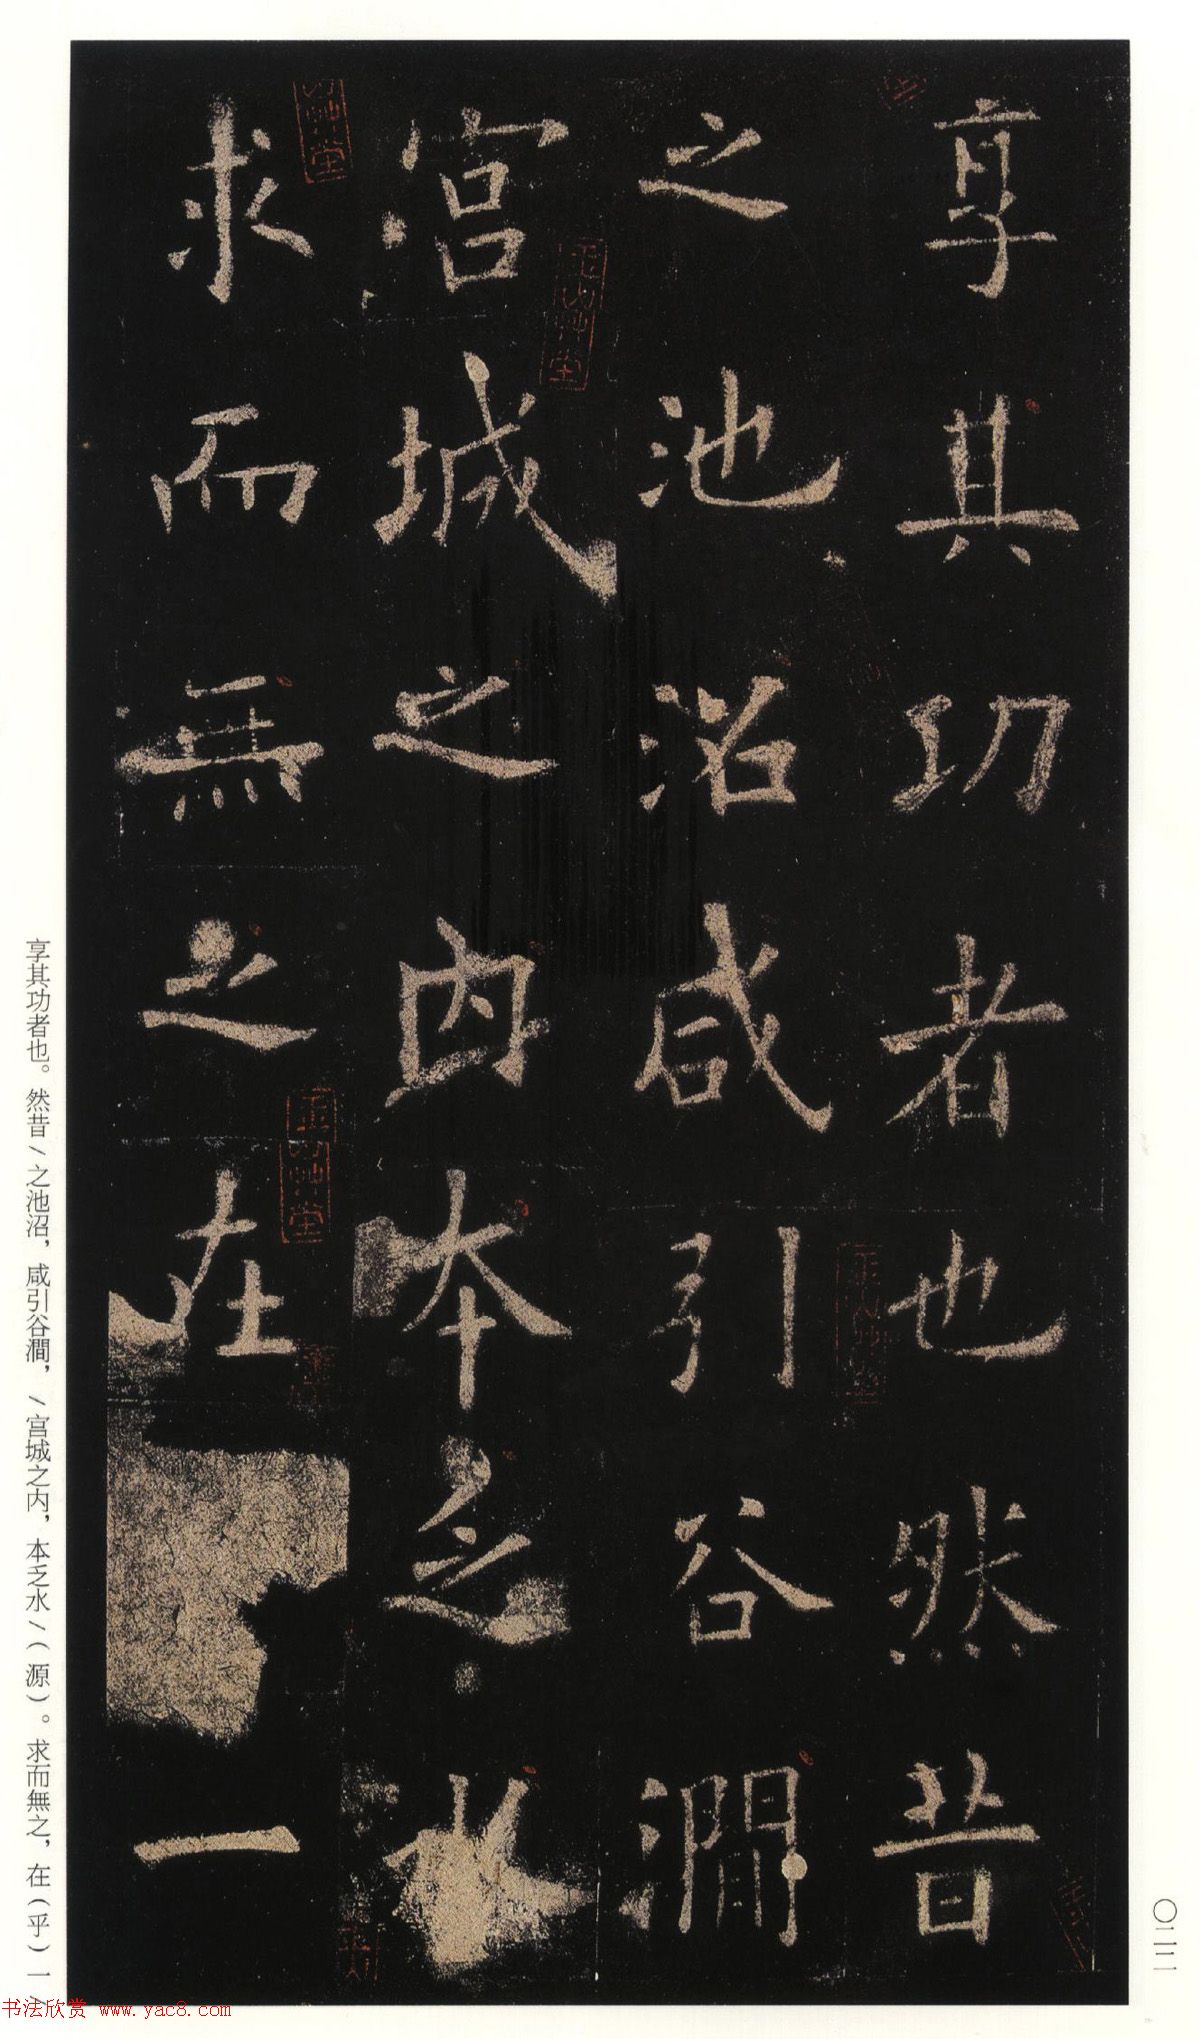 享其功者也然昔
之池沼咸引谷澗
宫城之内本乏水
求而無之在一
享其功者也。然昔/之池沼，咸引谷澗，/宫城之内，本乏水/(源)。求而無之，在(乎)一/
〇二二
书法欣赏 www.yac8.com